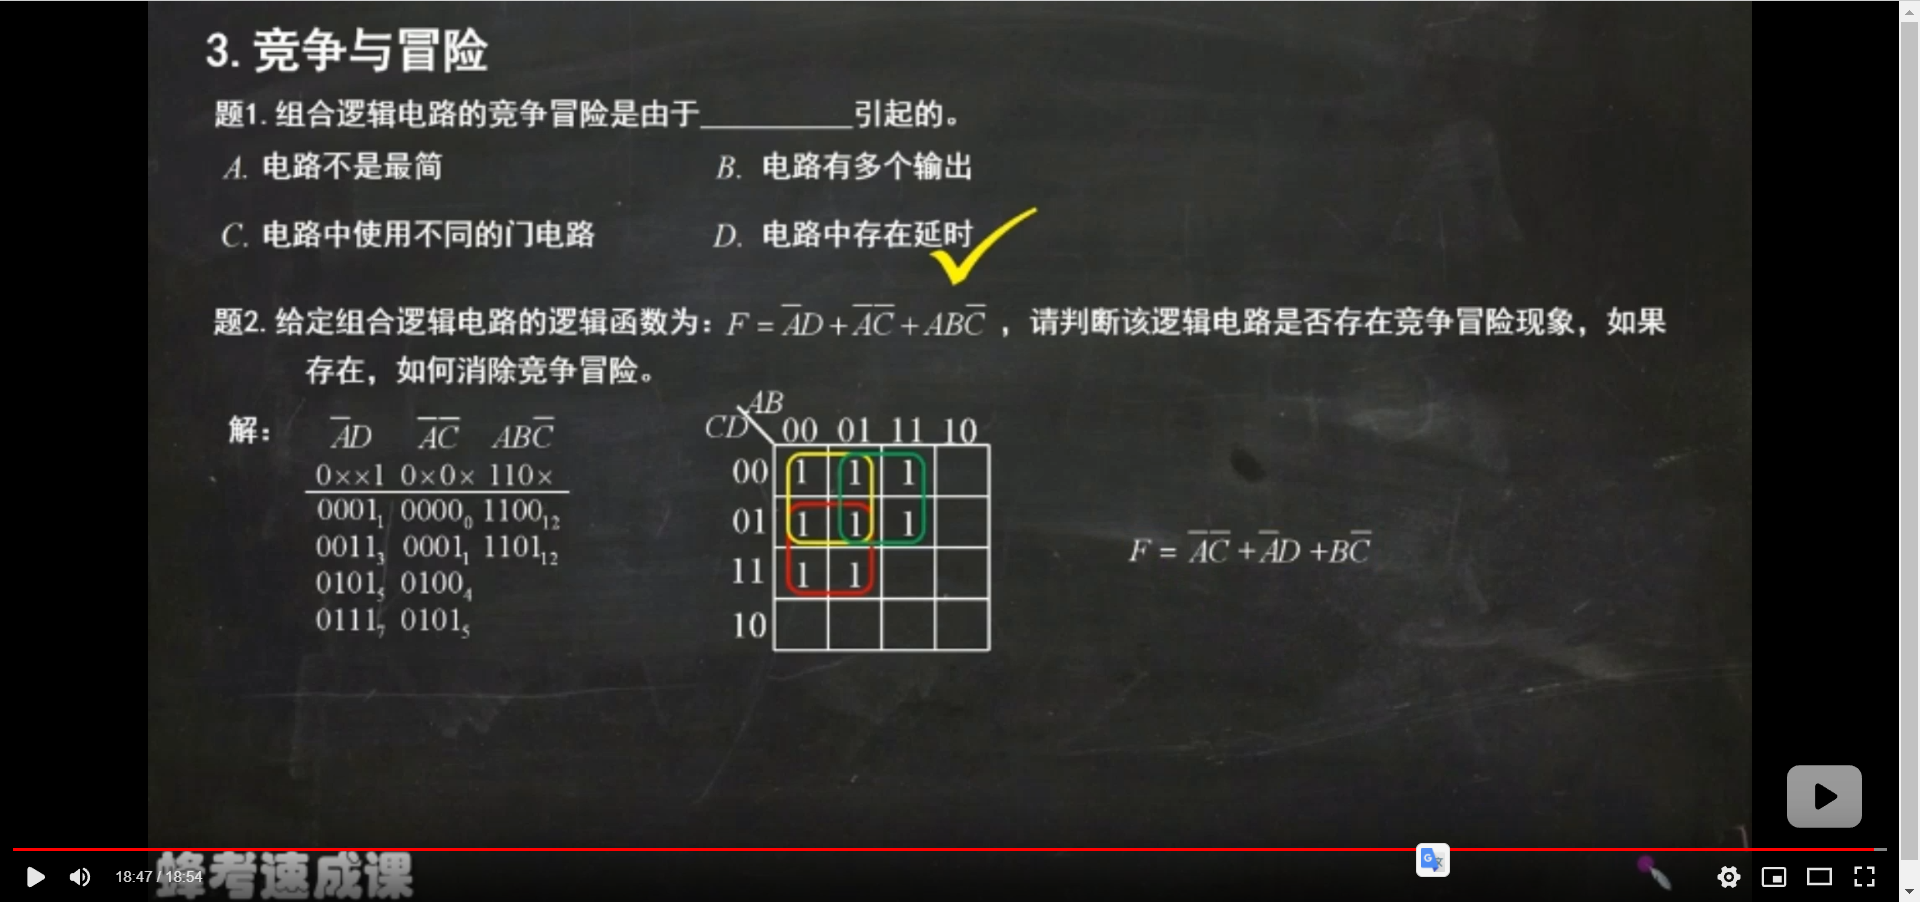 3. 竞争与冒险
题1. 组合逻辑电路的竞争冒险是由于__________引起的。
A. 电路不是最简 B. 电路有多个输出
C. 电路中使用不同的门电路 D. 电路中存在延时
题2. 给定组合逻辑电路的逻辑函数为：F = A̅D + A̅C̅ + ABC̅ ，请判断该逻辑电路是否存在竞争冒险现象，如果
存在，如何消除竞争冒险。
解： A̅D A̅C̅ ABC̅
0××1 0×0× 110×
0001₁ 0000₀ 1100₁₂
0011₃ 0001₁ 1101₁₂
0101₅ 0100₄
0111₇ 0101₅
AB
CD 00 01 11 10
00 1 1 1
01 1 1 1
11 1 1
10
F = A̅C̅ + A̅D + BC̅
蜂考速成课
18:47 / 18:54